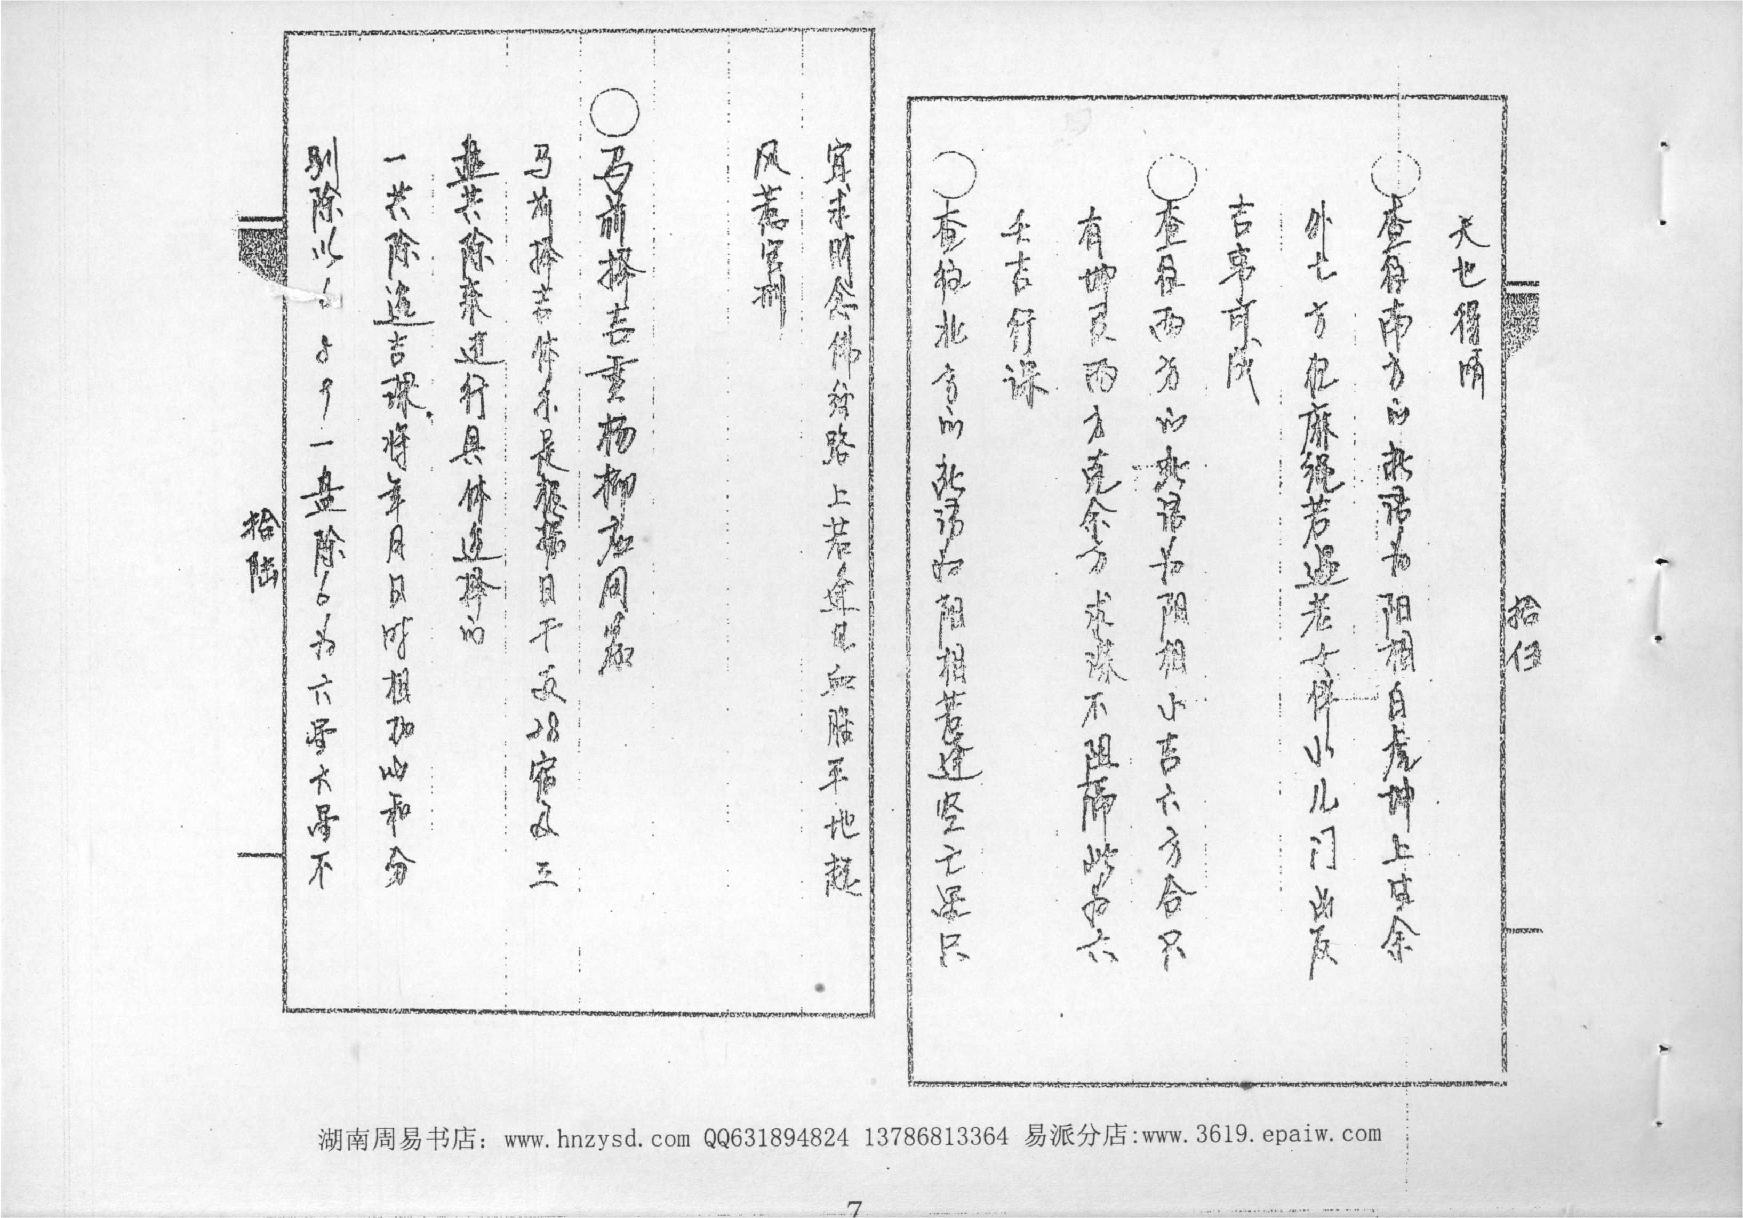 天也得晴
查往南方的赦语为阳相白虎坤上生余
外七方犯麻绳若遇老女伴小儿门出反
吉事可成
查往西方的赦语为阳相小吉六方合只
有坤艮两方克余方求谋不阻隔此为六
壬吉行课
查往北方的赦语为阳相若逢空亡课只
拾伍
宜求财念佛经路上若逢见血腥平地起
风惹官刑
马前择吉重杨柳应用篇
马前择吉体系是根据日干支28宿及三
盘共除来进行具体选择的
一共除选吉课将年月日时相加的和分
别除以6 8 9一盘除6为六曜六曜不
拾陆
湖南周易书店：www.hnzysd.com QQ631894824 13786813364 易派分店:www.3619.epaiw.com
7